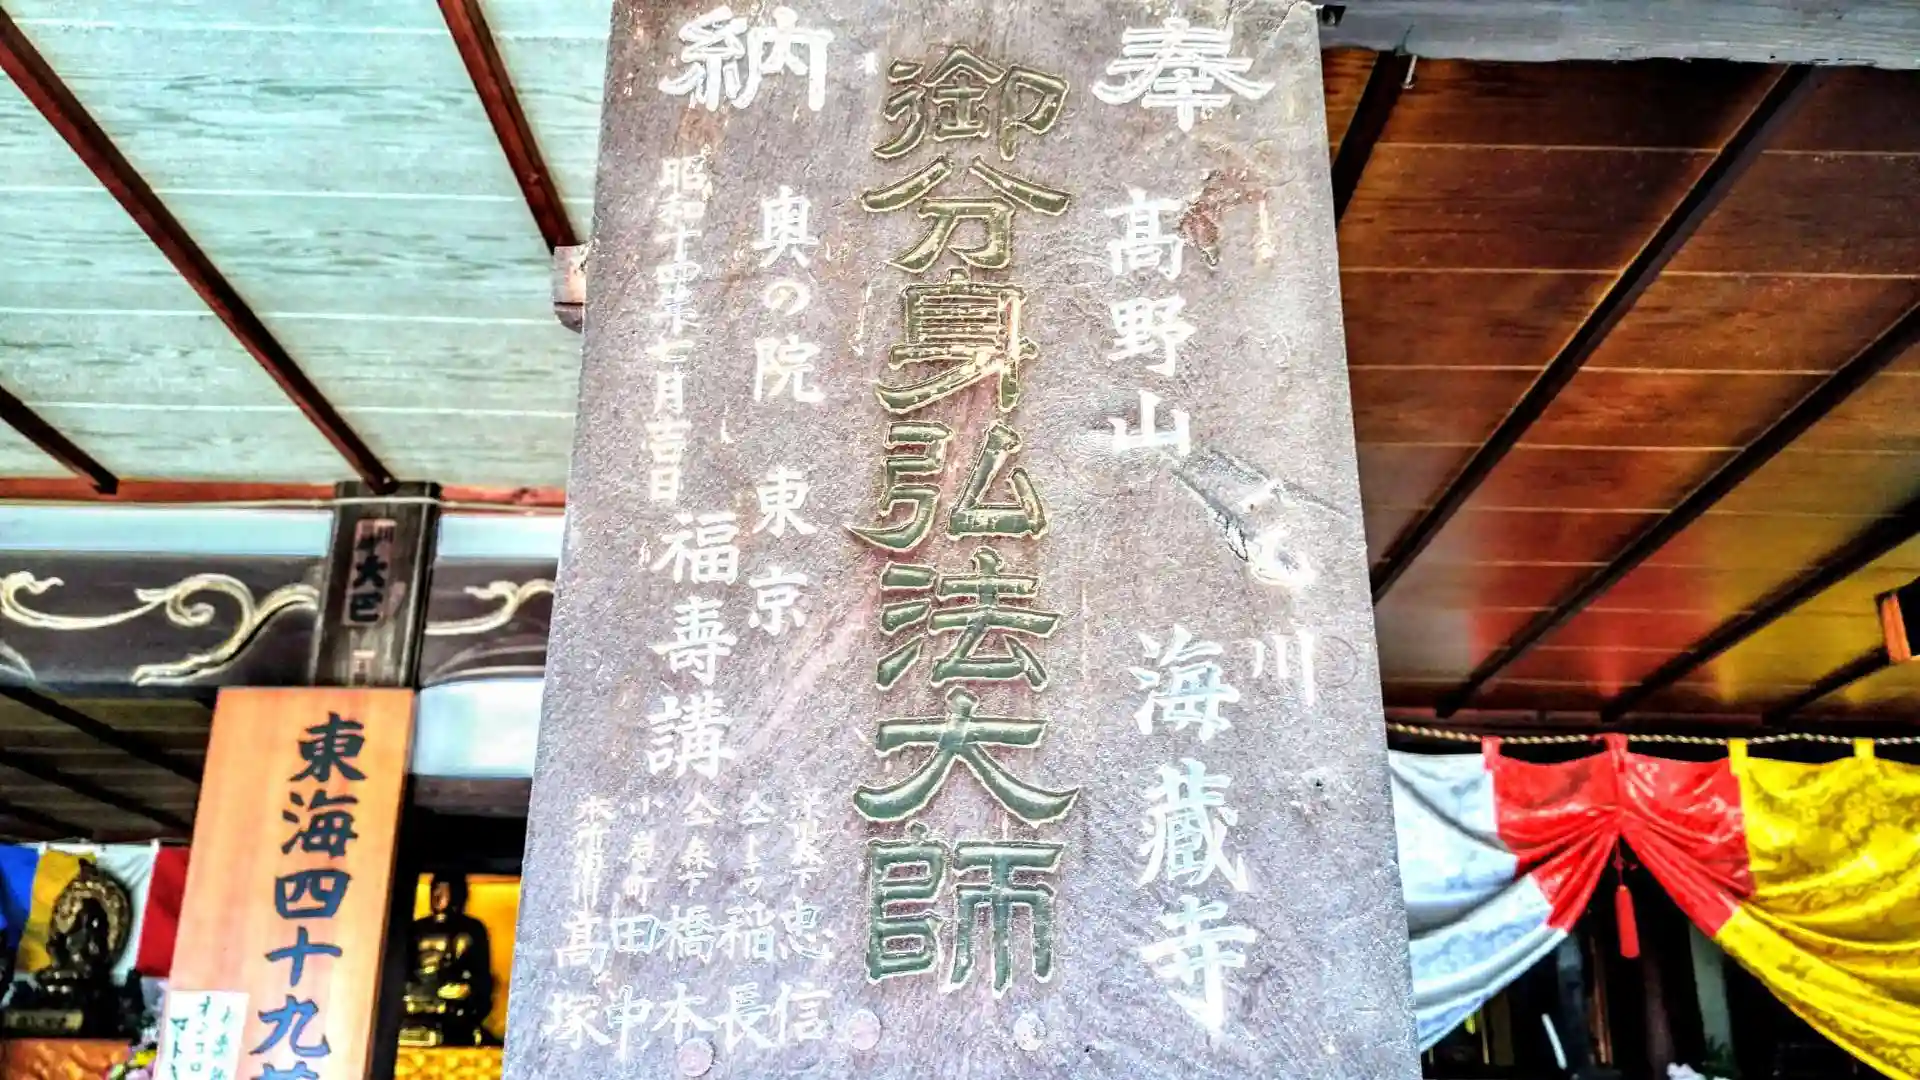 奉納
高野山
川
海蔵寺
御分身弘法大師
奥の院 東京
昭和十四年七月吉日
福寿講
恵信
稲長
橋本
小岩町 田中
髙塚
東海四十九
大巴